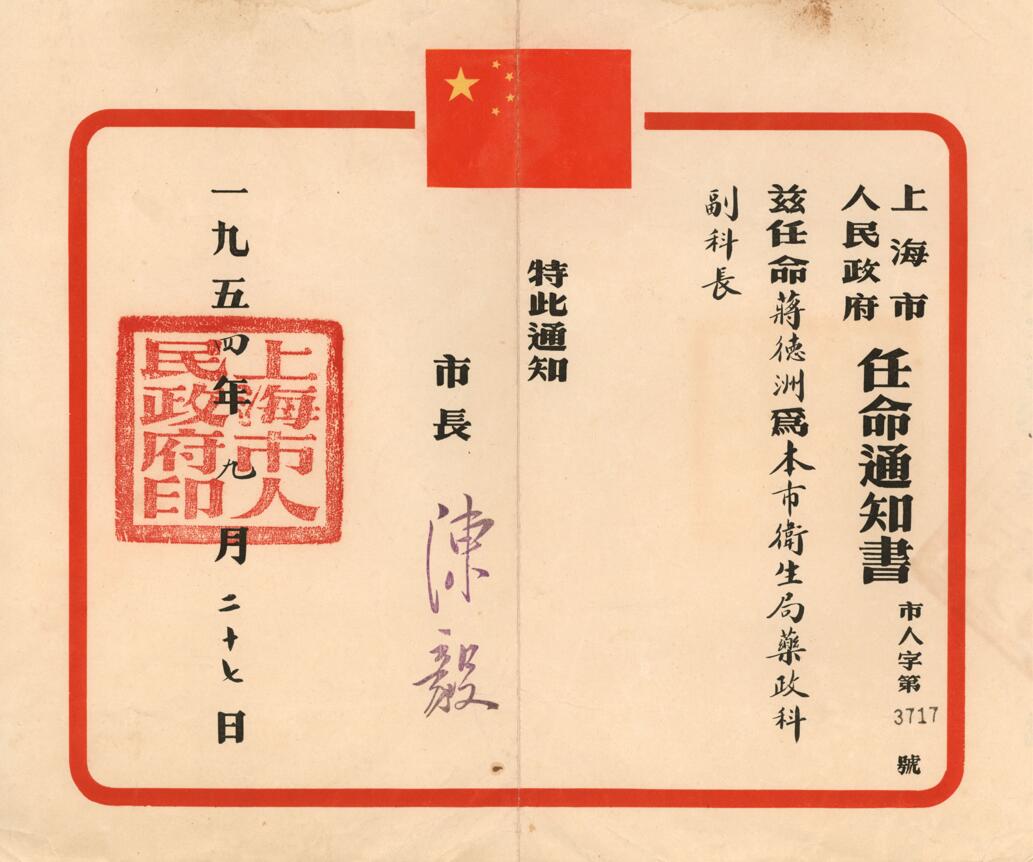 上海市
人民政府
任命通知書
市人字第3717號
兹任命蔣德洲爲本市衛生局藥政科
副科長
特此通知
市長
陳毅
一九五四年九月二十七日
上海市人
民政府印